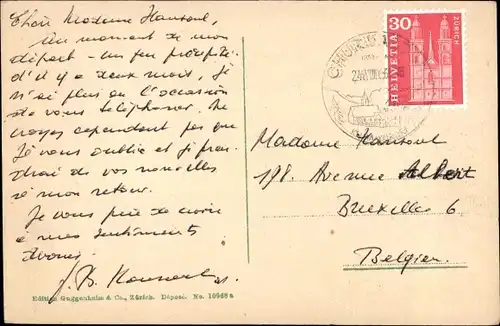 Chère Madame Hansoul,
Au moment de mon
départ - un peu précipité
d'il y a deux mois, je
n'ai plus eu l'occasion
de vous téléphoner. Ne
croyez cependant pas que
Je vous oublie et je pren-
drai de vos nouvelles
à mon retour.
Je vous prie de croire
à mes sentiments
dévoués.
Edition Guggenheim & Co., Zürich. Déposé. No. 16968a
30
HELVETIA
ZÜRICH
Madame Hansoul
198. Avenue Albert
Bruxelles 6
Belgien